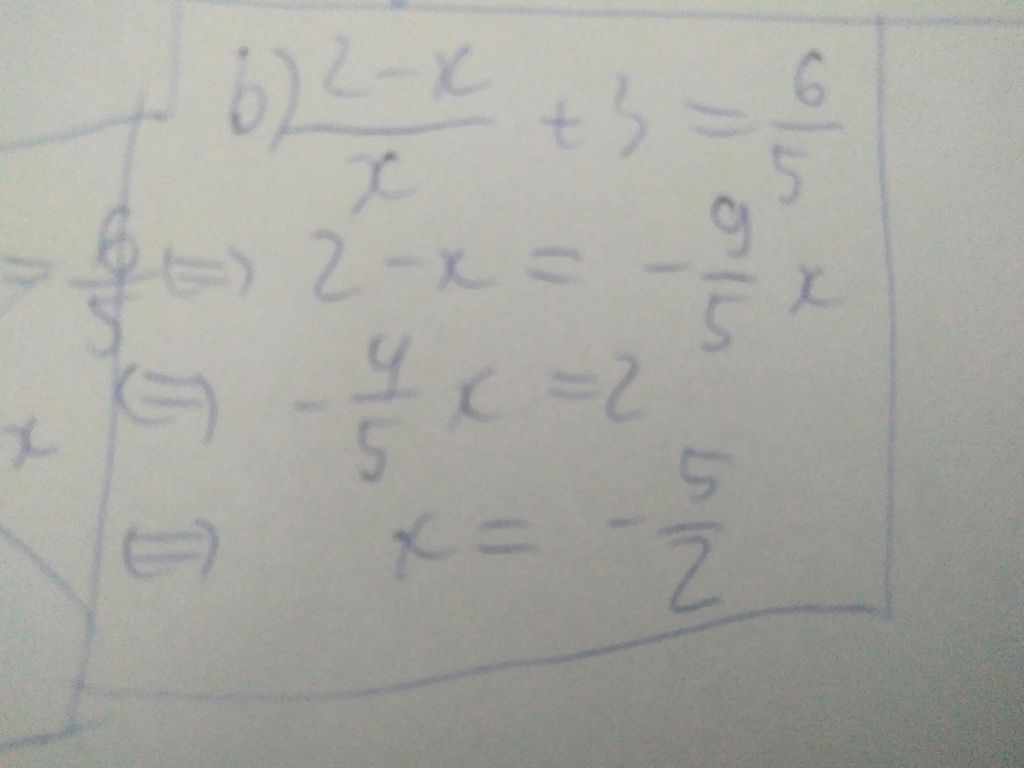 b) \frac{2-x}{x} + 3 = \frac{6}{5}
= \frac{6}{5} <=> 2 - x = -\frac{9}{5} x
<=> -\frac{4}{5} x = 2
x
<=> x = -\frac{5}{2}